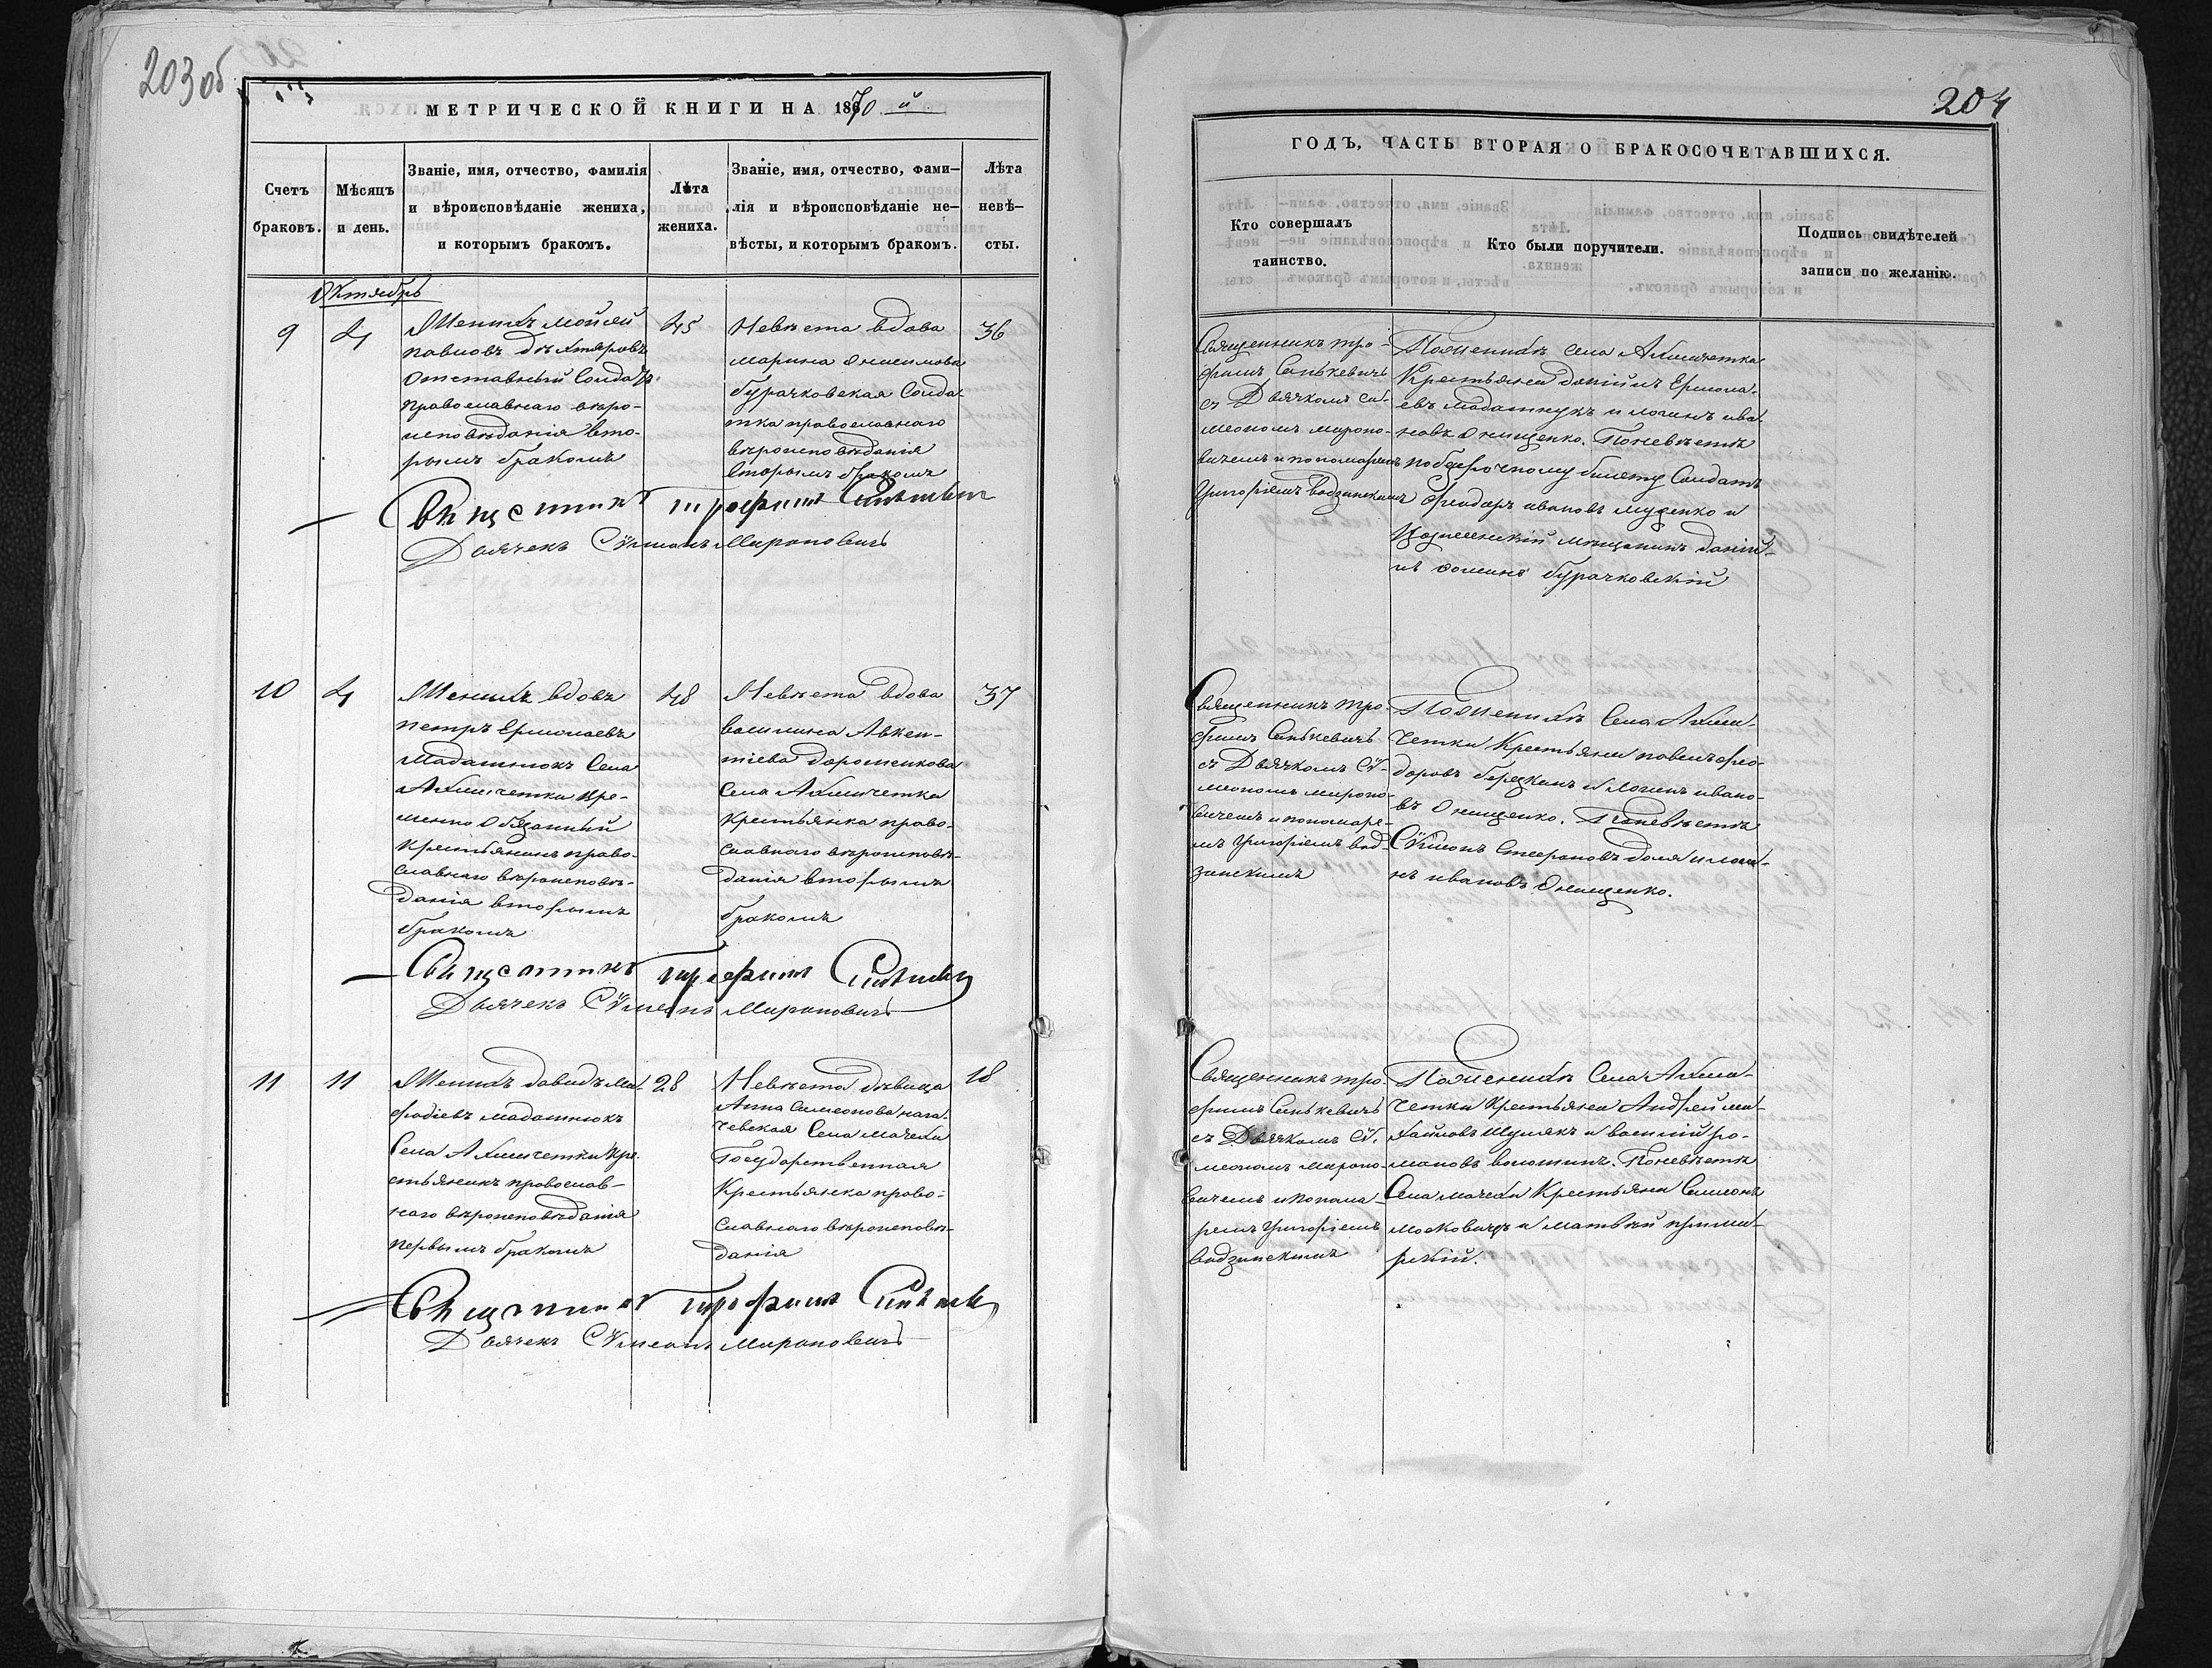 203 об
МЕТРИЧЕСКОЙ КНИГИ НА 1870 й
Счетъ
браковъ.
Мѣсяцъ
и день.
Званіе, имя, отчество, фамилія
и вѣроисповѣданіе жениха,
и которымъ бракомъ.
Лѣта
жениха.
Званіе, имя, отчество, фами-
лія и вѣроисповѣданіе не-
вѣсты, и которымъ бракомъ.
Лѣта
невѣ-
сты.
Октябрь
9
4
Женихъ Мойсей
Павловъ Дѣхтяровъ
Отставный Солдатъ
православнаго вѣро-
исповѣданія вто-
рымъ бракомъ
45
Невѣста вдова
Марина Онисимова
Бурачковская Солда-
тка православнаго
вѣроисповѣданія
вторымъ бракомъ
36
Священникъ Трофимъ Синькевич
Дьячекъ Сѵмеонъ Мироновичъ
10
4
Женихъ вдовъ
Петръ Ермолаевъ
Мадатнюкъ Села
Ахмечетки вре-
менно Обязанный
Крестьянинъ право-
славнаго вѣроисповѣ-
данія вторымъ
бракомъ
48
Невѣста вдова
Василина Авкен-
тіева Дорошенкова
Села Ахмечетки
Крестьянка право-
славнаго вѣроисповѣ-
данія вторымъ
бракомъ
37
Священникъ Трофимъ Синькевич
Дьячекъ Сѵмеонъ Мироновичъ
11
11
Женихъ Давидъ Ме-
фодіевъ Мадатнюкъ
Села Ахмечетки Кре-
стьянинъ православ-
наго вѣроисповѣданія
первымъ бракомъ
28
Невѣста дѣвица
Анна Симеонова
Села Мачехи
Государственная
Крестьянка право-
славнаго вѣроисповѣ-
данія
18
Священникъ Трофимъ Синькевич
Дьячекъ Сѵмеонъ Мироновичъ
204
ГОДЪ, ЧАСТЬ ВТОРАЯ О БРАКОСОЧЕТАВШИХСЯ.
Кто совершалъ
таинство.
Кто были поручители.
Подпись свидѣтелей
записи по желанію.
Священникъ Тро-
фимъ Синькевичъ
съ Дьячкомъ Си-
меономъ Мироно-
вичемъ и пономаремъ
Григоріемъ Водзинскимъ
По Женихѣ села Ахмечетки
Крестьяне Даніилъ Ермола-
евъ Мадатнюкъ и Логинъ Ива-
новъ Онищенко. По невѣстѣ
по безсрочному билету Солдатъ
Феодоръ Ивановъ Муденко и
мещанинъ Дании-
лъ Фоминъ Бурачковскій
Священникъ Тро-
фимъ Синькевичъ
съ Дьячкомъ Сѵ-
меономъ Мироно-
вичемъ и пономаре-
мъ Григоріемъ Вод-
зинскимъ
По Женихѣ Села Ахме-
четки Крестьяне Павелъ Фео-
доровъ и Логинъ Ивано-
въ Онищенко. По невѣстѣ
Сѵмеонъ Стефановъ Доля и Логи-
нъ Ивановъ Онищенко.
Священникъ Тро-
фимъ Синькевичъ
съ Дьячкомъ Сѵ-
меономъ Мироно-
вичемъ и понома-
ремъ Григоріемъ
Водзинскимъ
По Женихѣ Села Ахме-
четки Крестьяне Андрей Ми-
хайловъ Шулякъ и Василій Ро-
мановъ Волошинъ. По невѣстѣ
Села Мачехи Крестьяне Симеонъ
Московецъ и Матвѣй